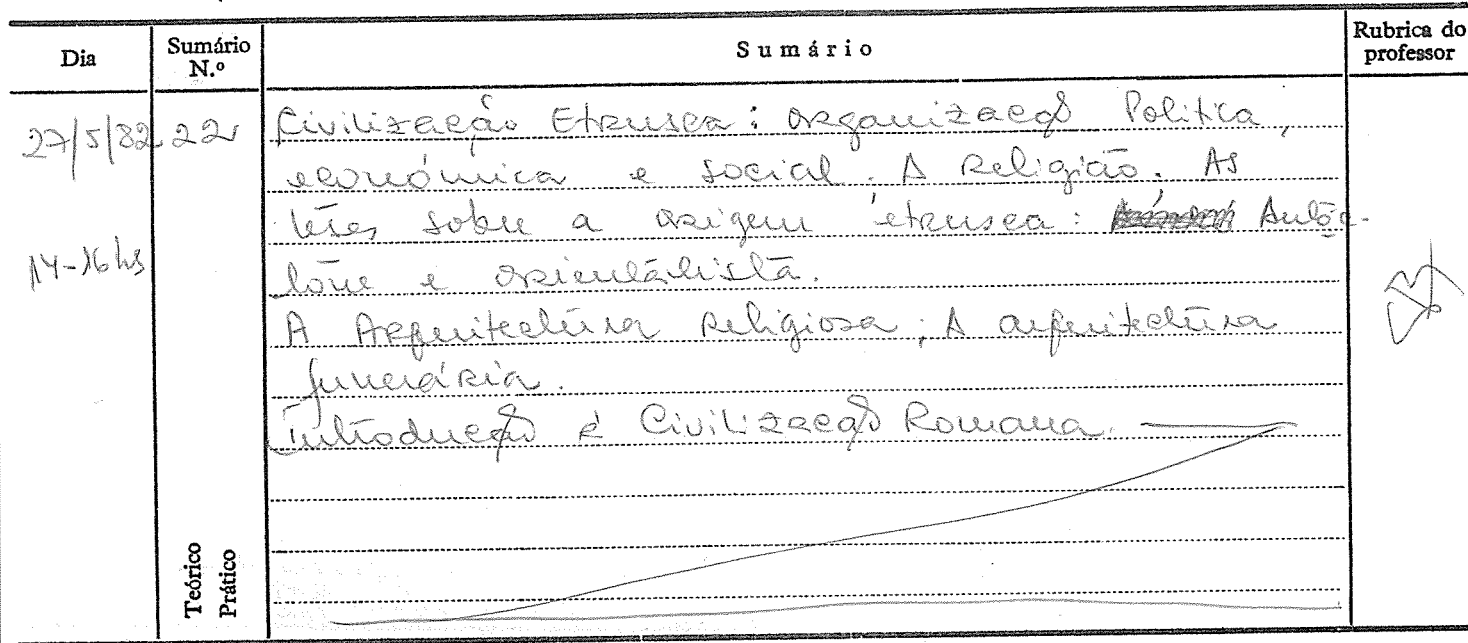 Dia Sumário N.º Sumário Rubrica do professor
27/5/82 22 Civilização Etrusca: organização Politica,
económica e social. A Religião. As
teses sobre a origem etrusca: Autóc-
14-16 hs tone e orientalista.
A Arquitectura religiosa; A arquitectura
funerária.
Introdução à Civilização Romana.
Teórico
Prático